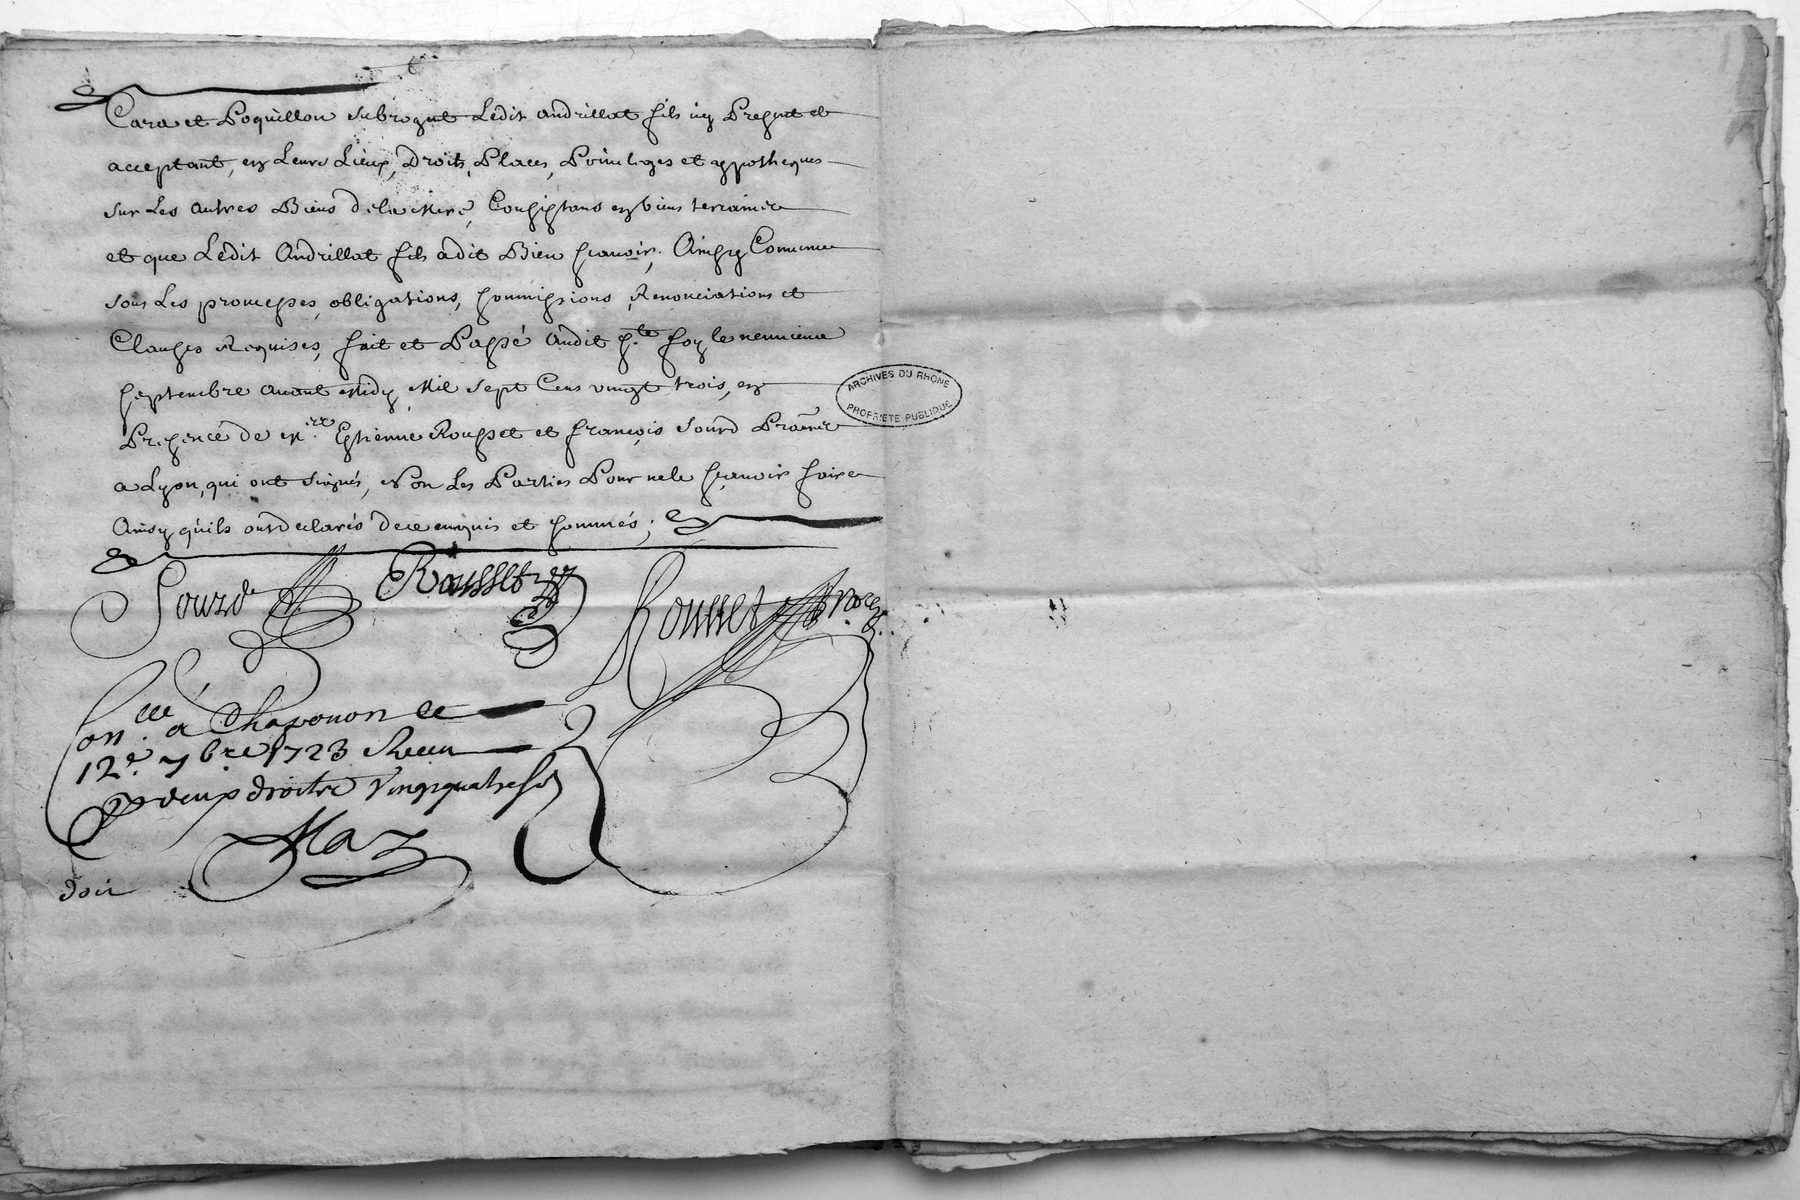 Cara et Poquillon subrogent Ledit Andrillat fils icy Present et
acceptant, en Leurs Lieux, Droits, Places, Privileges et ypotheques
sur Les autres Biens dela Mere, Consistans en biens
et que Ledit Andrillat fils a dit Bien sçavoir; Ainsy Convenu
sous Les promesses, obligations, soumissions, Renonciations et
Clauses Requises, fait et Passé audit Ste foy le neuvieme
septembre avant Midy Mil sept Cens vingt trois, en
Presence de Mres Estienne Rousset et françois Sourd Praticiens
a Lyon, qui ont signés, et non Les Parties Pour ne le sçavoir faire
Ainsy qu'ils ont declarés de ce enquis et sommés;
Sourd Rousset Rousset
ARCHIVES DU RHONE
PROPRIETE PUBLIQUE
Con.lle a Chaponon le
12e. 7bre 1723 Receu
deux droitre Vingtquatre sols
doit